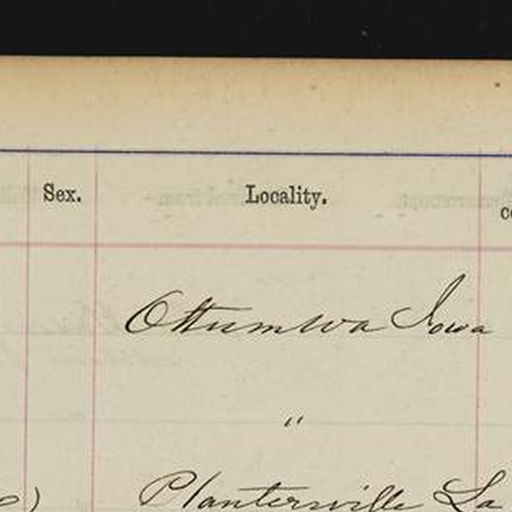 Sex. Locality.
Ottumwa Iowa
"
Plantersville La